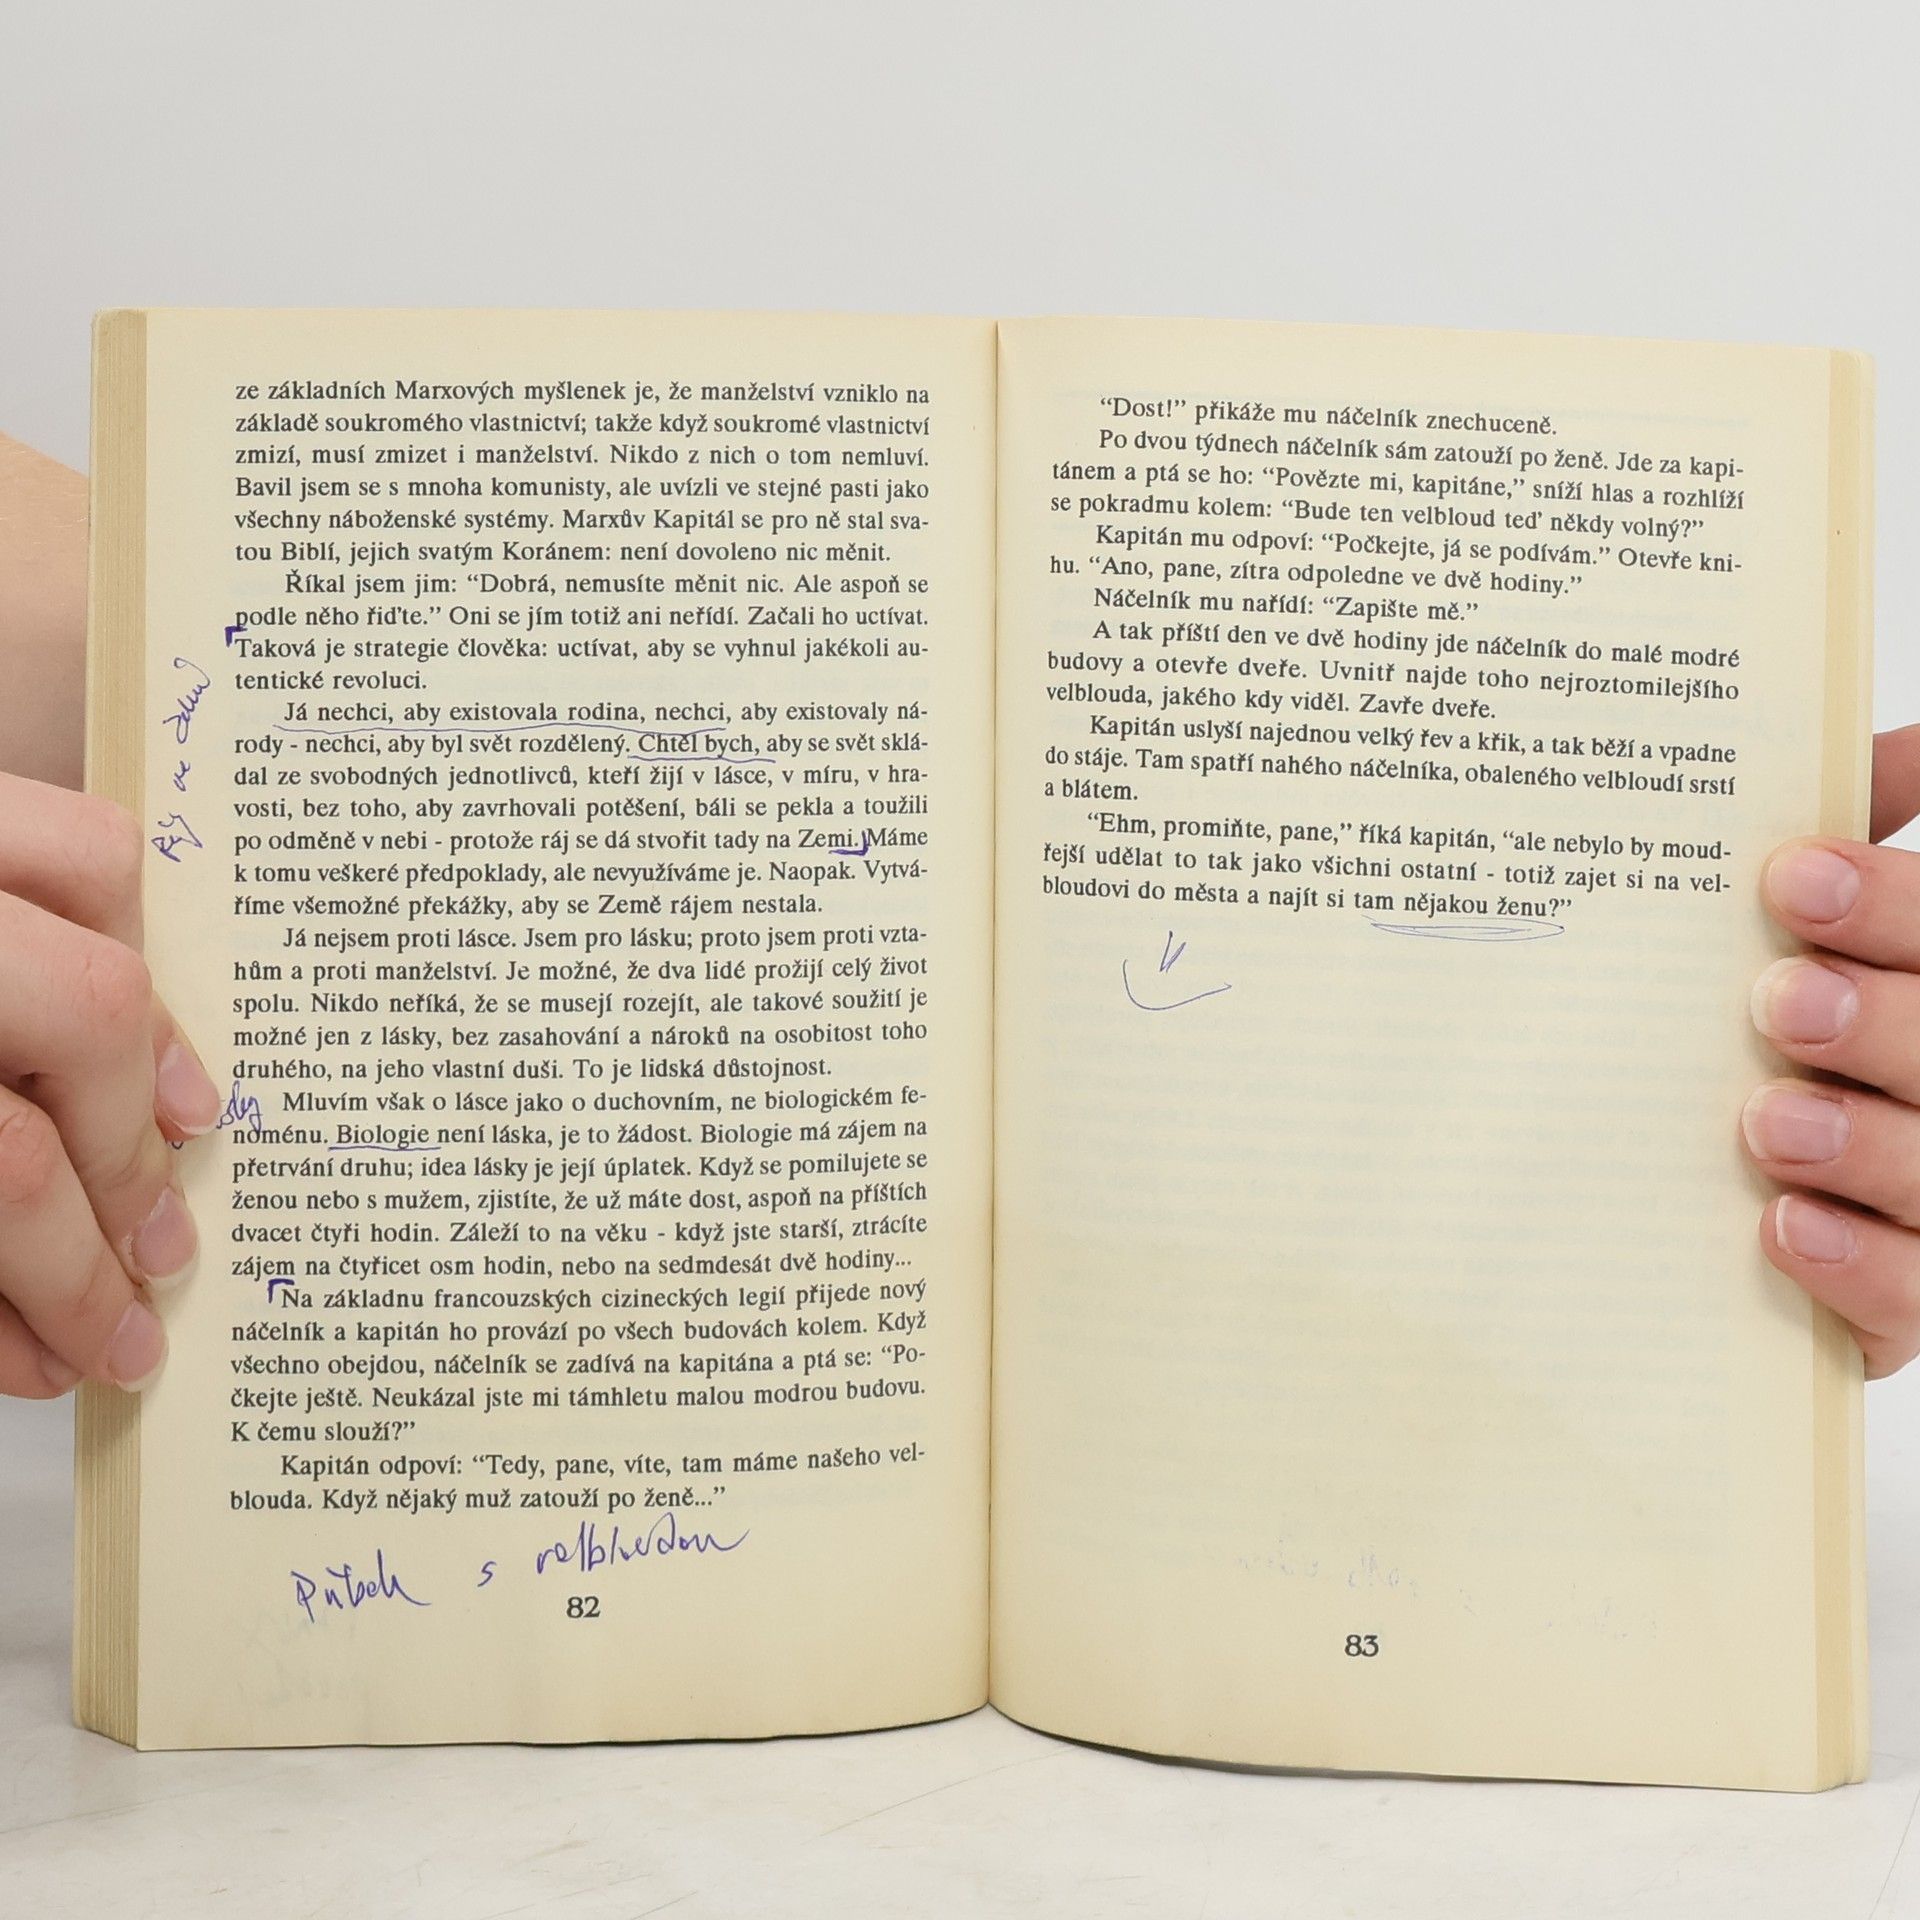 ze základních Marxových myšlenek je, že manželství vzniklo na
základě soukromého vlastnictví; takže když soukromé vlastnictví
zmizí, musí zmizet i manželství. Nikdo z nich o tom nemluví.
Bavil jsem se s mnoha komunisty, ale uvízli ve stejné pasti jako
všechny náboženské systémy. Marxův Kapitál se pro ně stal sva-
tou Biblí, jejich svatým Koránem: není dovoleno nic měnit.
Říkal jsem jim: “Dobrá, nemusíte měnit nic. Ale aspoň se
podle něho řiďte.” Oni se jím totiž ani neřídí. Začali ho uctívat.
Taková je strategie člověka: uctívat, aby se vyhnul jakékoli au-
tentické revoluci.
Já nechci, aby existovala rodina, nechci, aby existovaly ná-
rody - nechci, aby byl svět rozdělený. Chtěl bych, aby se svět sklá-
dal ze svobodných jednotlivců, kteří žijí v lásce, v míru, v hra-
vosti, bez toho, aby zavrhovali potěšení, báli se pekla a toužili
po odměně v nebi - protože ráj se dá stvořit tady na Zemi. Máme
k tomu veškeré předpoklady, ale nevyužíváme je. Naopak. Vytvá-
říme všemožné překážky, aby se Země rájem nestala.
Já nejsem proti lásce. Jsem pro lásku; proto jsem proti vzta-
hům a proti manželství. Je možné, že dva lidé prožijí celý život
spolu. Nikdo neříká, že se musejí rozejít, ale takové soužití je
možné jen z lásky, bez zasahování a nároků na osobitost toho
druhého, na jeho vlastní duši. To je lidská důstojnost.
Mluvím však o lásce jako o duchovním, ne biologickém fe-
noménu. Biologie není láska, je to žádost. Biologie má zájem na
přetrvání druhu; idea lásky je její úplatek. Když se pomilujete se
ženou nebo s mužem, zjistíte, že už máte dost, aspoň na příštích
dvacet čtyři hodin. Záleží to na věku - když jste starší, ztrácíte
zájem na čtyřicet osm hodin, nebo na sedmdesát dvě hodiny...
Na základnu francouzských cizineckých legií přijede nový
náčelník a kapitán ho provází po všech budovách kolem. Když
všechno obejdou, náčelník se zadívá na kapitána a ptá se: “Po-
čkejte ještě. Neukázal jste mi támhletu malou modrou budovu.
K čemu slouží?”
Kapitán odpoví: “Tedy, pane, víte, tam máme našeho vel-
blouda. Když nějaký muž zatouží po ženě...”
s velbloudem
82
“Dost!” přikáže mu náčelník znechuceně.
Po dvou týdnech náčelník sám zatouží po ženě. Jde za kapi-
tánem a ptá se ho: “Povězte mi, kapitáne,” sníží hlas a rozhlíží
se pokradmu kolem: “Bude ten velbloud teď někdy volný?”
Kapitán mu odpoví: “Počkejte, já se podívám.” Otevře kni-
hu. “Ano, pane, zítra odpoledne ve dvě hodiny.”
Náčelník mu nařídí: “Zapište mě.”
A tak příští den ve dvě hodiny jde náčelník do malé modré
budovy a otevře dveře. Uvnitř najde toho nejroztomilejšího
velblouda, jakého kdy viděl. Zavře dveře.
Kapitán uslyší najednou velký řev a křik, a tak běží a vpadne
do stáje. Tam spatří nahého náčelníka, obaleného velbloudí srstí
a blátem.
“Ehm, promiňte, pane,” říká kapitán, “ale nebylo by moud-
řejší udělat to tak jako všichni ostatní - totiž zajet si na vel-
bloudovi do města a najít si tam nějakou ženu?”
83